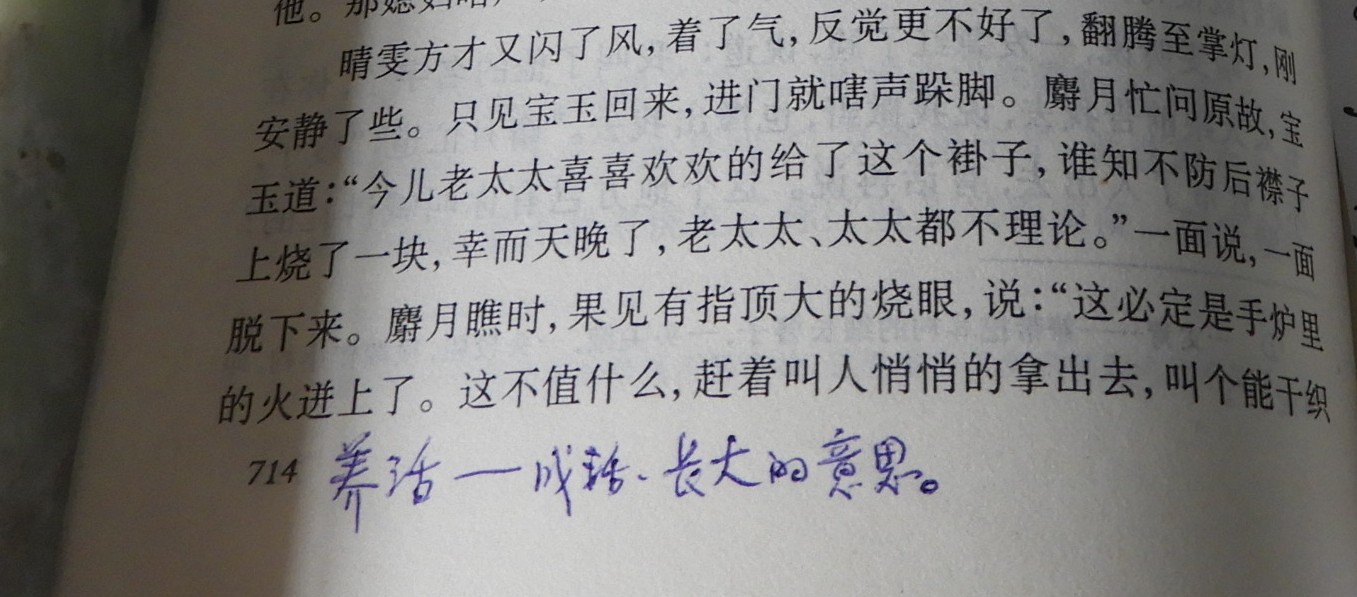 他。那媳妇
晴雯方才又闪了风,着了气,反觉更不好了,翻腾至掌灯,刚
安静了些。只见宝玉回来,进门就嗐声跺脚。麝月忙问原故,宝
玉道:“今儿老太太喜喜欢欢的给了这个褂子,谁知不防后襟子
上烧了一块,幸而天晚了,老太太、太太都不理论。”一面说,一面
脱下来。麝月瞧时,果见有指顶大的烧眼,说:“这必定是手炉里
的火迸上了。这不值什么,赶着叫人悄悄的拿出去,叫个能干织
714 养活一成活、长大的意思。